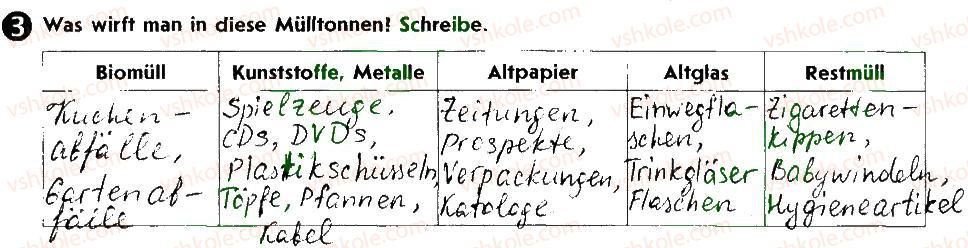 3 Was wirft man in diese Mülltonnen? Schreibe.
Biomüll Kunststoffe, Metalle Altpapier Altglas Restmüll
Kuchen-
abfälle,
Gartenab-
fälle
Spielzeuge,
CDs, DVDs,
Plastikschüsseln,
Töpfe, Pfannen,
Kabel
Zeitungen,
Prospekte,
Verpackungen,
Kataloge
Einwegfla-
schen,
Trinkgläser
Flaschen
Zigaretten-
kippen,
Babywindeln,
Hygieneartikel
vshkole.com